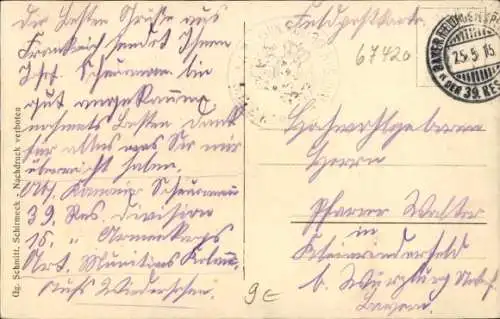 Die besten Grüße aus
Frankreich sendet Ihnen
Josf. Scheurman bin
gut angekommen
nochmals besten Dank
für alles was Sie mir
überreicht haben.
Abs. Kanonir Scheurman
39. Res. Division
15. " Armeekorps
Art. Munitions Kolon.
Aufs Wiedersehen.
Gg. Schmitt, Schirmeck - Nachdruck verboten
Feldpostkarte
67420
BAYER.
25.5.15
DER 39. RES.
Hochwohlgeboren
Herrn
Pfarrer Walter
in
Kleinrinderfeld
b. Würzburg
Bayern.
9E